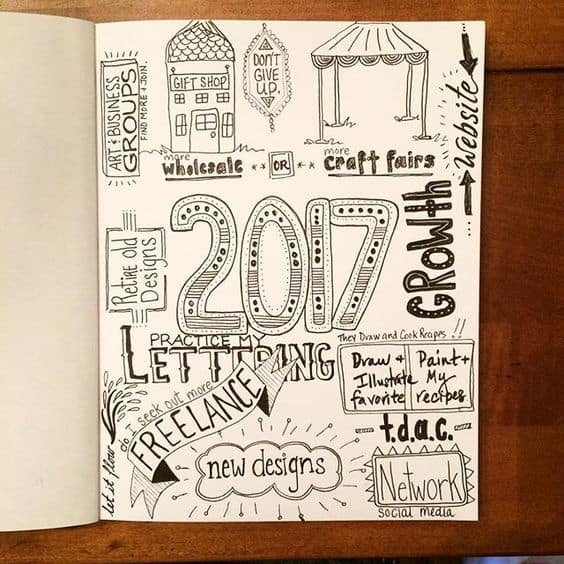 ART & BUSINESS
GROUPS
FIND MORE & JOIN.
GIFT SHOP
DON'T
GIVE
UP.
more
wholesale
OR
more
craft fairs
Website
Growth
Retire old
Designs
2017
PRACTICE MY
LETTERING
They Draw and Cook Recipes!!
Draw + Paint +
Illustrate My
favorite recipes
t.d.a.c.
do I seek out more
FREELANCE
let it flow
new designs
Network
social media